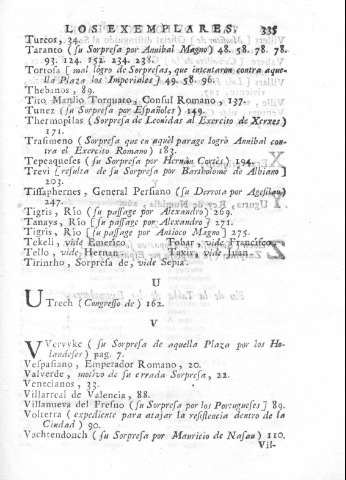 LOS EXEMPLARES. 335
Turcos, 34.
Taranto (su Sorpresa por Annibal Magno) 48. 58. 78. 78.
93. 124. 152. 234. 238.
Tortosa [mal logro de Sorpresas, que intentaron contra aque-
lla Plaza los Imperiales] 49. 58. 96.
Thebanos, 89.
Tito Manlio Torquato, Consul Romano, 137.
Tunez (su Sorpresa por Españoles) 149.
Thermopilas (Sorpresa de Leonidas al Exercito de Xerxes)
171.
Trasimeno (Sorpresa que en aquèl parage logrò Annibal con-
tra el Exercito Romano) 183.
Tepeaqueses (su Sorpresa por Hernàn Cortès) 194.
Trevi [resulta de su Sorpresa por Bartholomè de Albiano]
203.
Tissaphernes, General Persiano (su Derrota por Agesilao)
247.
Tigris, Rio (su passage por Alexandro) 269.
Tanays, Rio (su passage por Alexandro) 271.
Tigris, Rio [su passage por Antioco Magno] 275.
Tekeli, vide Emerico. Tobar, vide Francisco.
Tello, vide Hernan. Taxis, vide Juan.
Tirintho, Sorpresa de, vide Sepia.
U
Utrech (Congresso de) 162.
V
VVervvke (su Sorpresa de aquella Plaza por los Ho-
landeses) pag. 7.
Vespasiano, Emperador Romano, 20.
Valverde, motivo de su errada Sorpresa, 22.
Venecianos, 33.
Villarreal de Valencia, 88.
Villanueva del Fresno (su Sorpresa por los Portugueses] 89.
Volterra (expediente para atajar la resistencia dentro de la
Ciudad) 90.
Vachtendonch (su Sorpresa por Mauricio de Nasau) 110.
Vil-